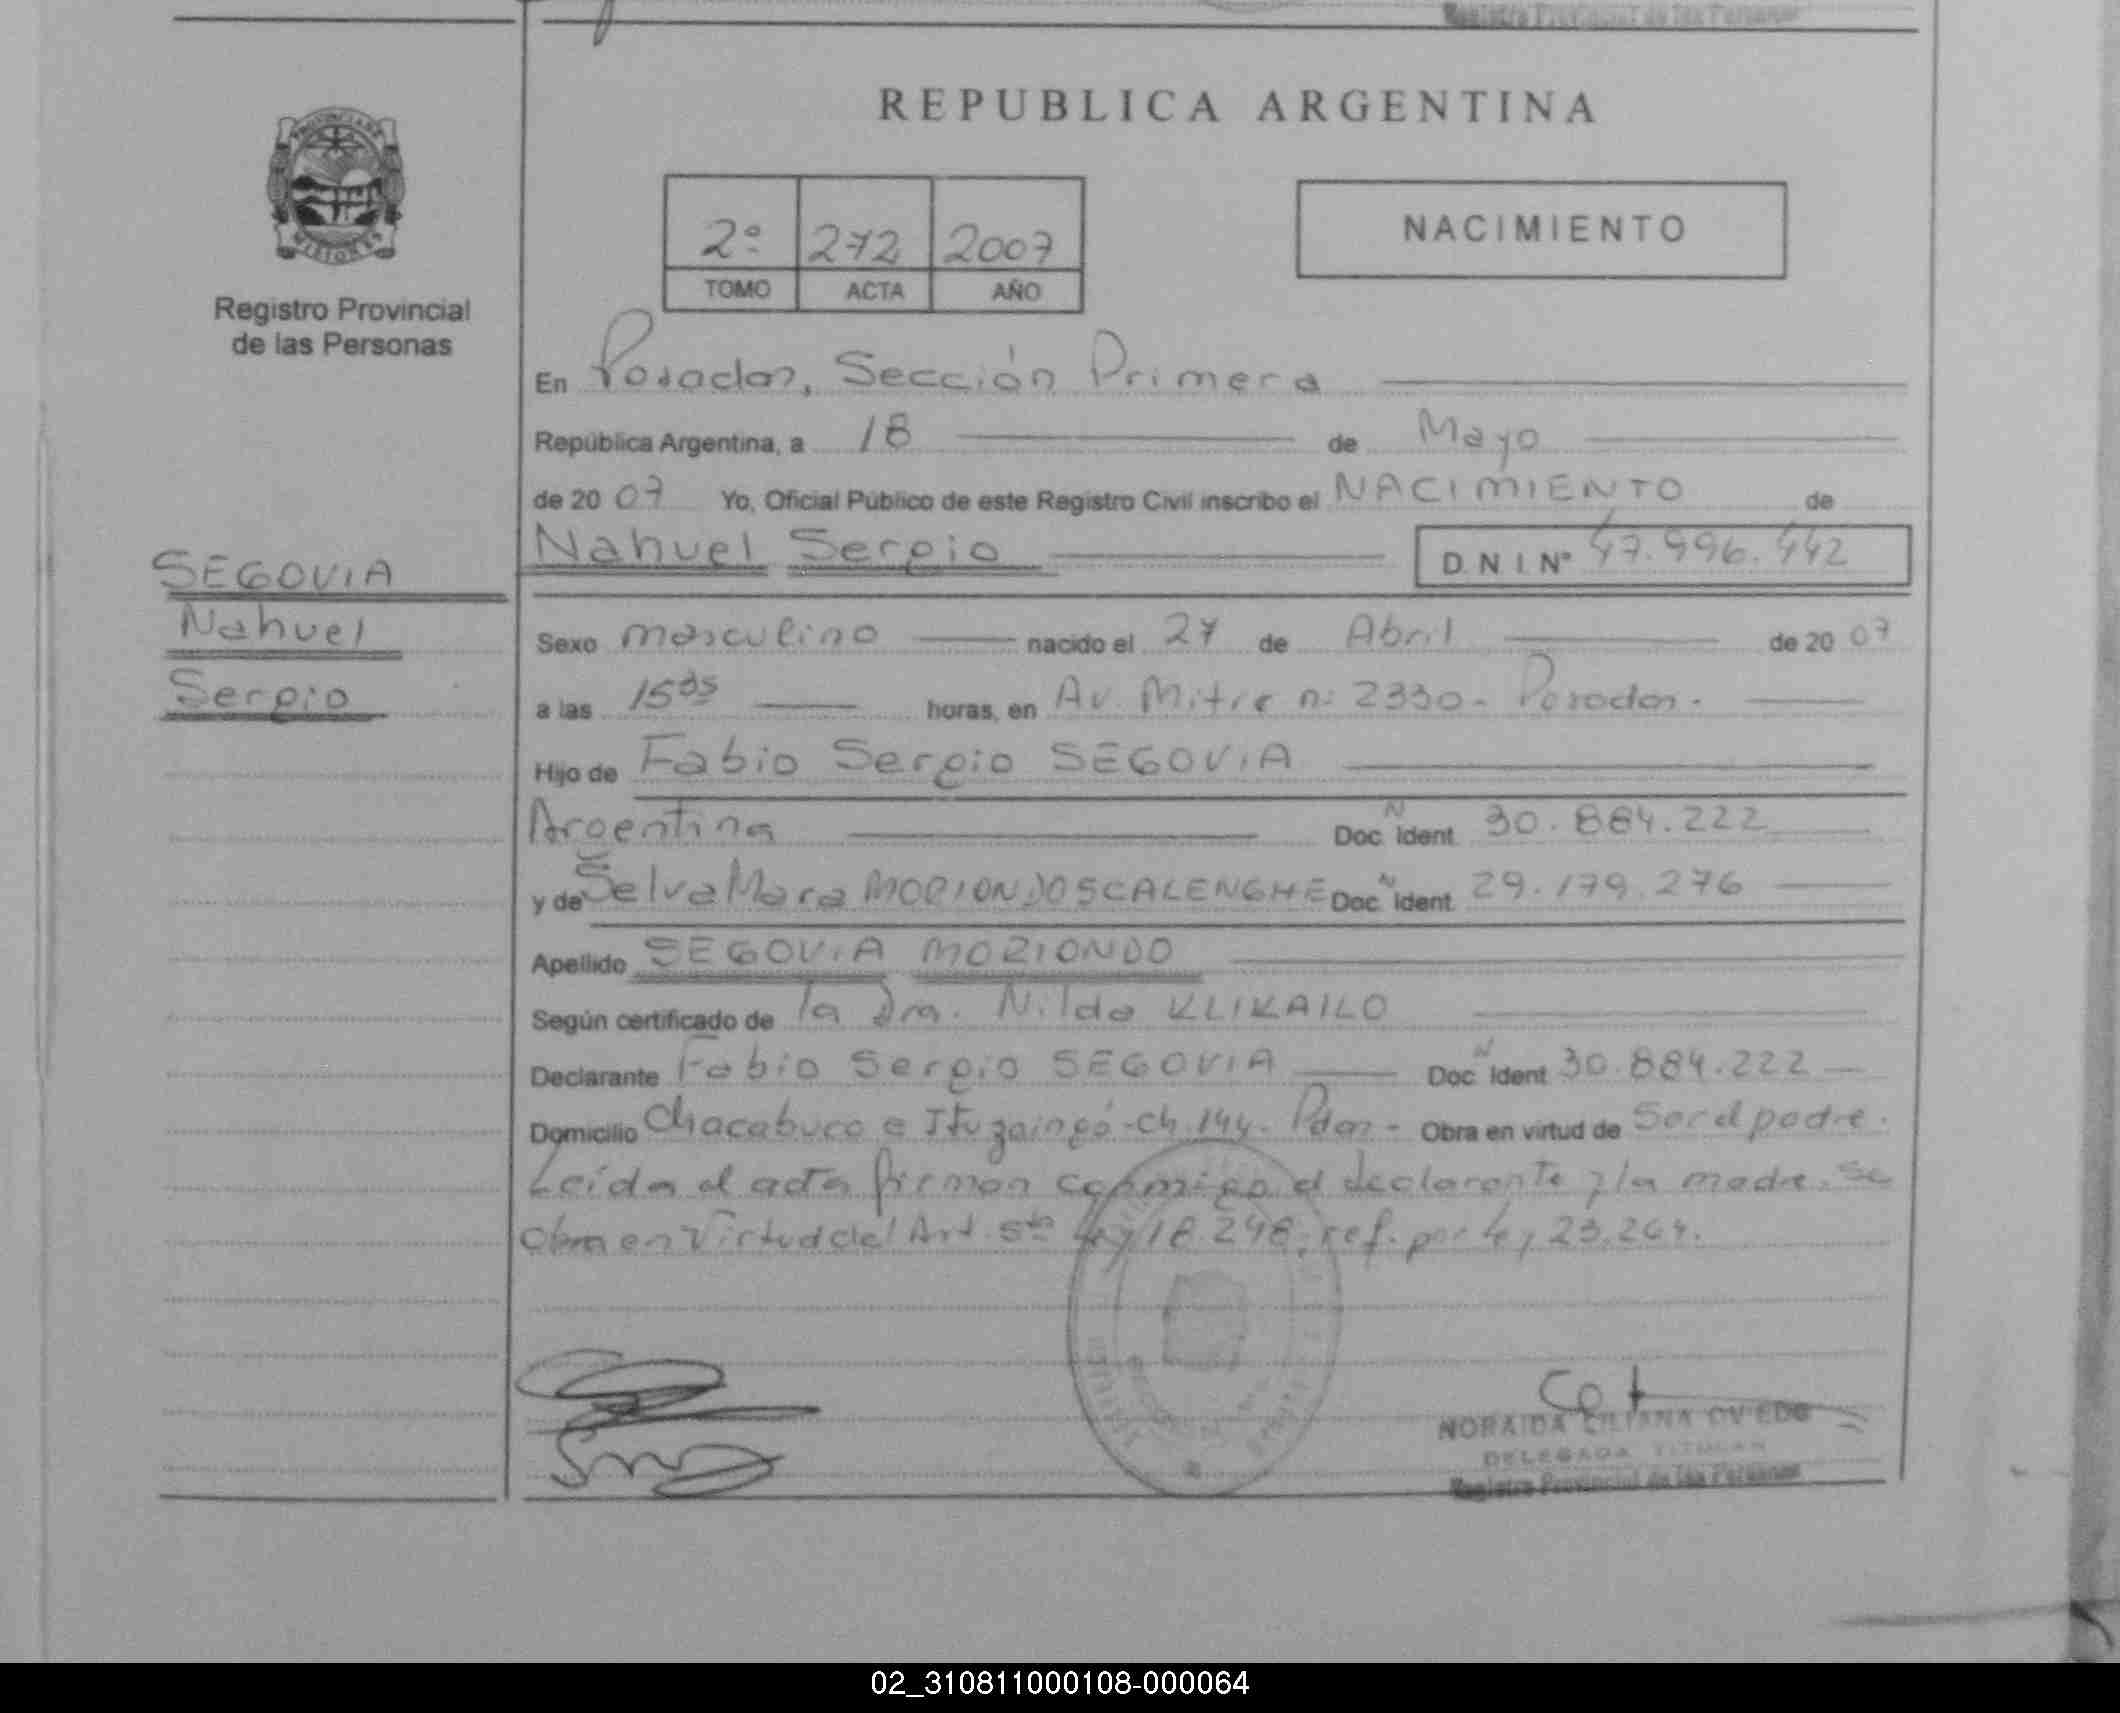 Registro Provincial de las Personas
REPUBLICA ARGENTINA
PROVINCIA DE
MISIONES
Registro Provincial
de las Personas
2º 272 2007
TOMO ACTA AÑO
NACIMIENTO
En Posadas, Sección Primera
República Argentina, a 18 de Mayo
de 2007 Yo, Oficial Público de este Registro Civil inscribo el NACIMIENTO de
Nahuel Sergio D.N.I. Nº 47.996.442
SEGOVIA
Nahuel
Sergio
Sexo masculino nacido el 27 de Abril de 2007
a las 15 35 horas, en Av. Mitre n: 2330 - Posadas.
Hijo de Fabio Sergio SEGOVIA
Argentina Doc. N Ident. 30.884.222
y de Selva Mara MORIONDO SCALENGHE Doc. N Ident. 29.179.276
Apellido SEGOVIA MORIONDO
Según certificado de la Dra. Nilda KLIKAILO
Declarante Fabio Sergio SEGOVIA Doc. N Ident. 30.884.222
Domicilio Chacabuco e Ituzaingó - Ch. 144 - Pdas - Obra en virtud de Ser el padre.
Leída el acta firman conmigo el declarante y la madre. Se
obra en Virtud del Art. 5to Ley 18.248, ref. por Ley 23.264.
NORAIDA LILIANA OVIEDO
DELEGADA TITULAR
Registro Provincial de las Personas
02_310811000108-000064